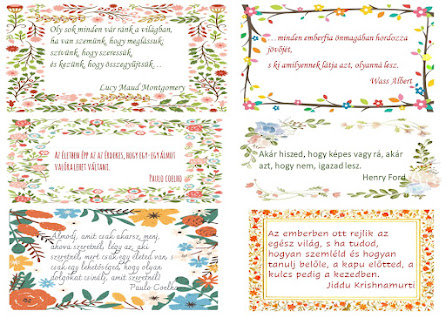 Oly sok minden vár ránk a világban,
ha van szemünk, hogy meglássuk;
szívünk, hogy szeressük
és kezünk, hogy összegyűjtsük...
Lucy Maud Montgomery
...minden emberfia önmagában hordozza
jövőjét,
s ki amilyennek látja azt, olyanná lesz.
Wass Albert
Az életben épp az az érdekes, hogy egy-egy álmot
valóra lehet váltani.
Paulo Coelho
Akár hiszed, hogy képes vagy rá, akár
azt, hogy nem, igazad lesz.
Henry Ford
Álmodj, amit csak akarsz, menj,
ahova szeretnél, légy az, aki
szeretnél, mert csak egy életed van, s
csak egy lehetőséged, hogy olyan
dolgokat csinálj, amit szeretnél!
Paulo Coelho
Az emberben ott rejlik az
egész világ, s ha tudod,
hogyan szemléld és hogyan
tanulj belőle, a kapu előtted, a
kulcs pedig a kezedben.
Jiddu Krishnamurti